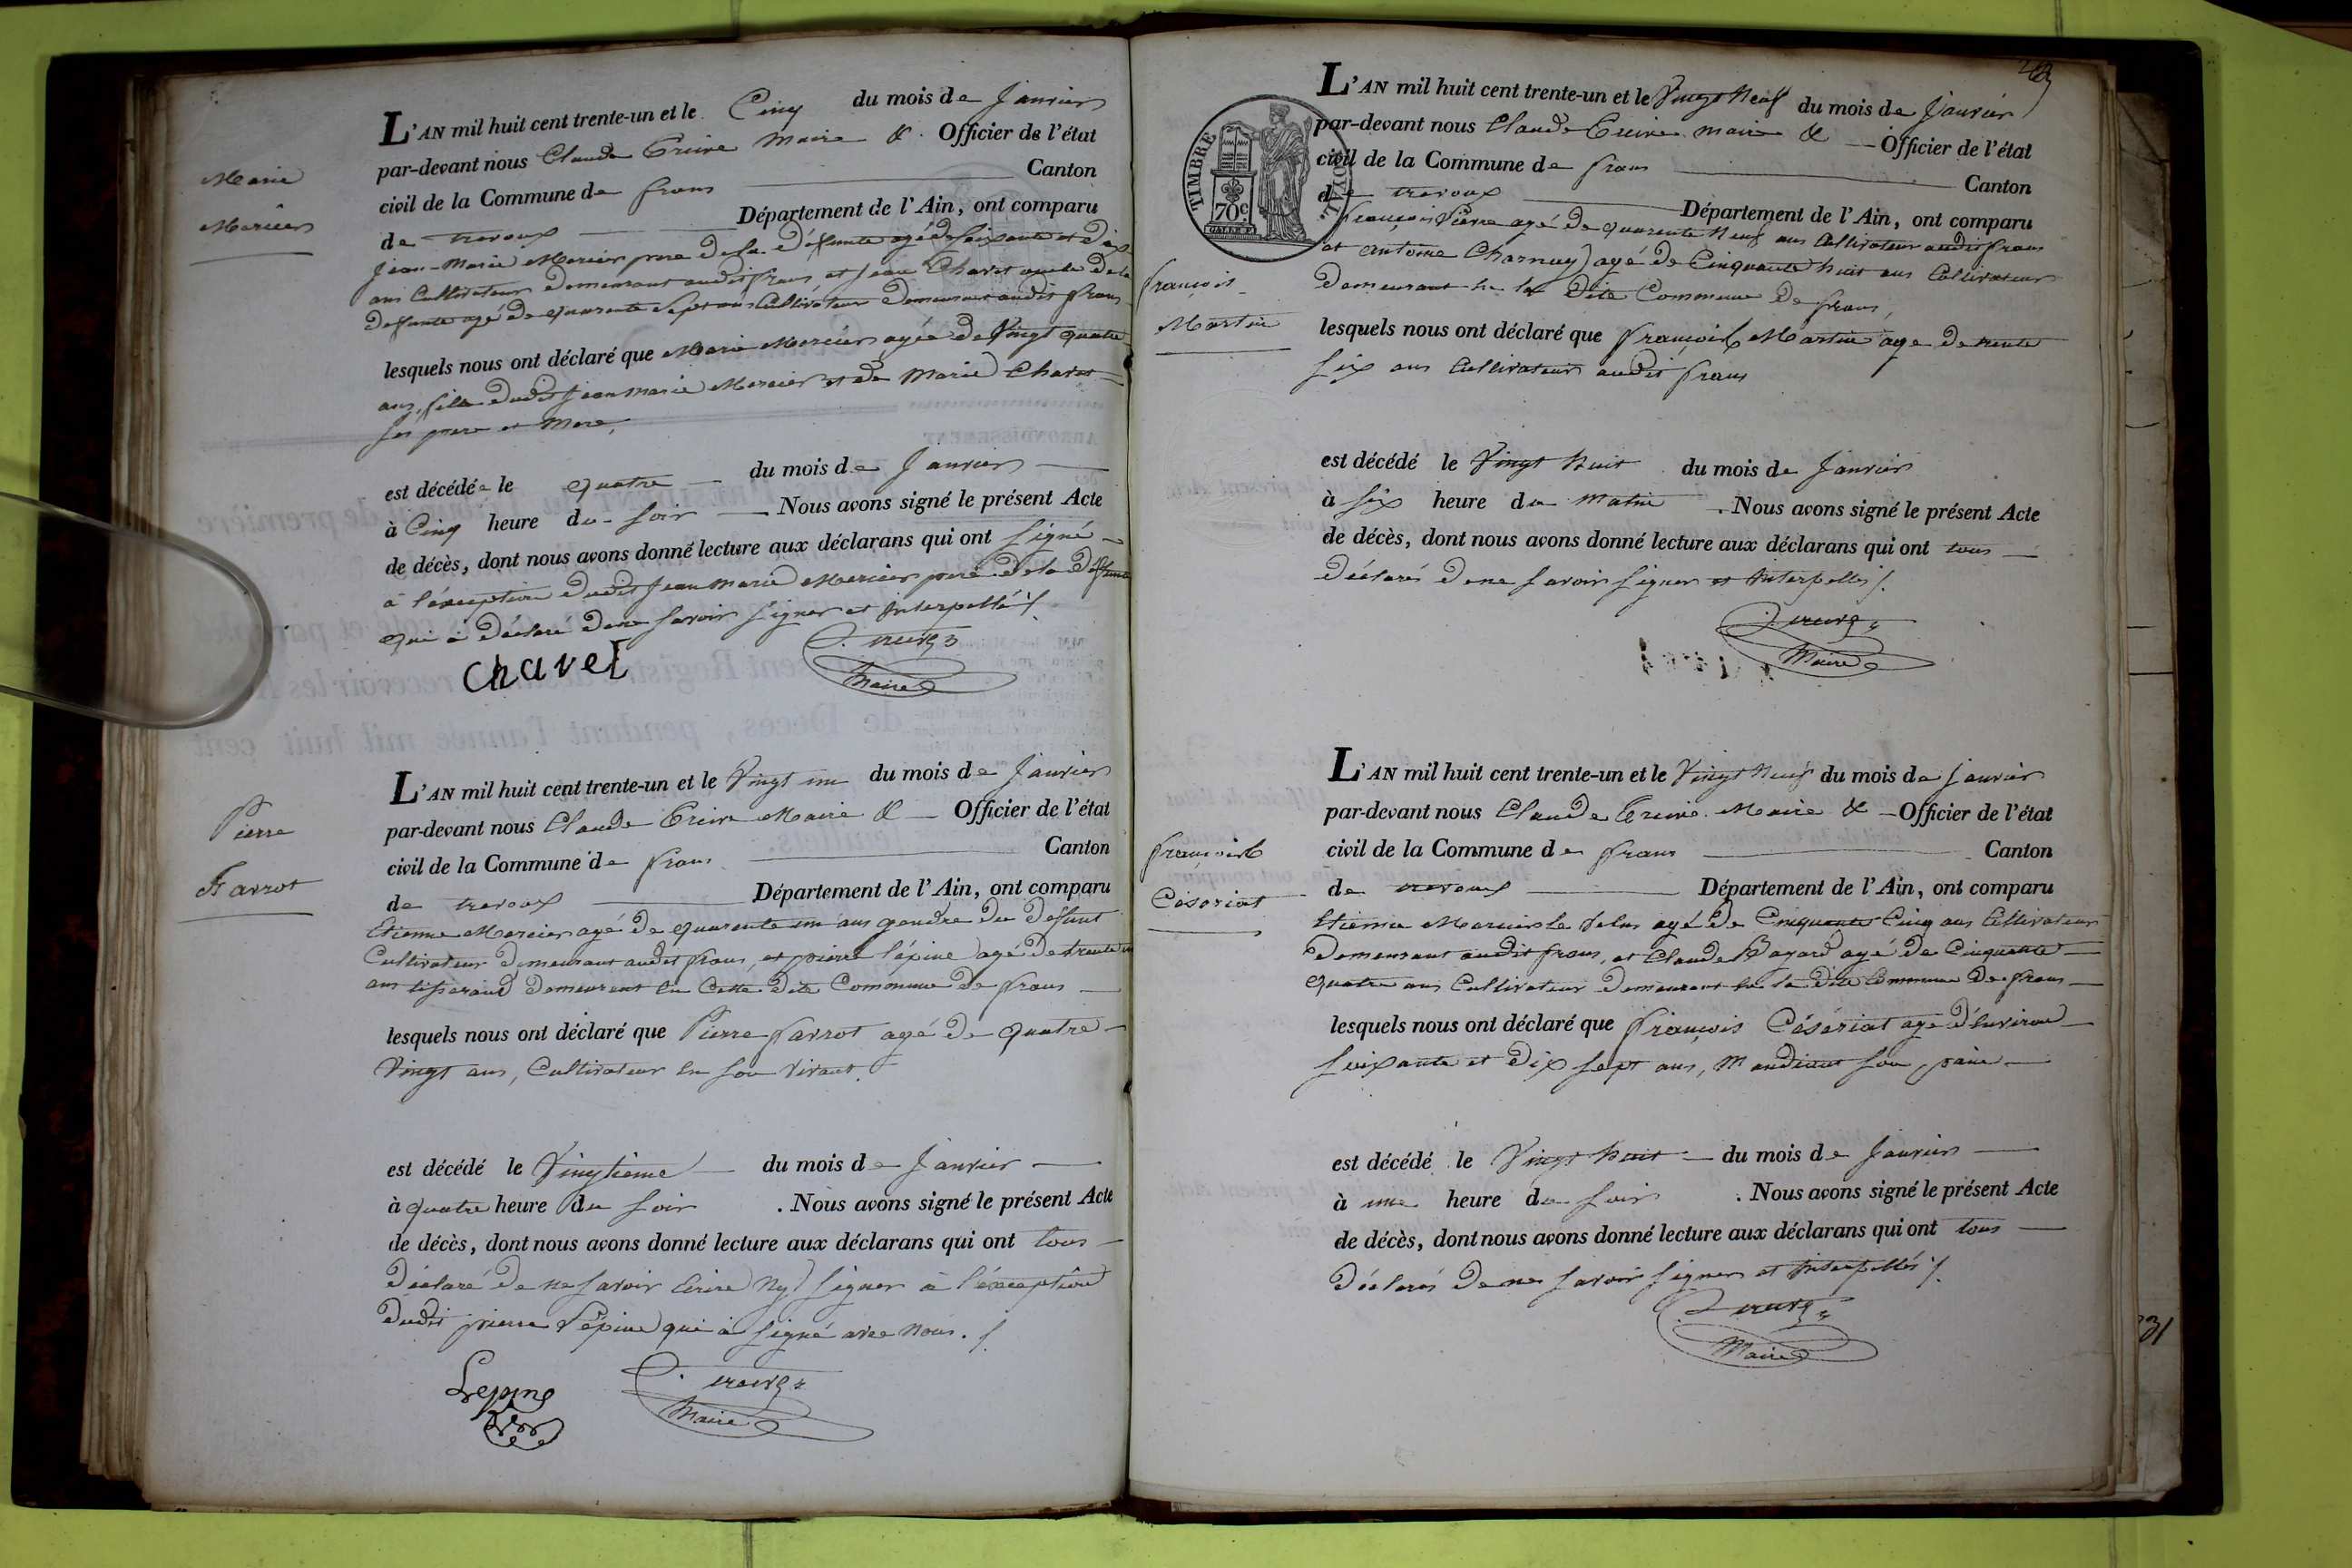 Marie
Mercier
L'AN mil huit cent trente-un et le Cinq du mois de Janvier
par-devant nous Claude Maire & Officier de l'état
civil de la Commune de frans Canton
de trevoux Département de l'Ain, ont comparu
Jean-Marie Mercier pere de la déffunte agé de soixante et dix
ans Cultivateur demeurant audit frans et Jean Chavet oncle de la
deffunte agé de quarente sept ans Cultivateur demeurant audit frans
lesquels nous ont déclaré que Marie Mercier agée de Vingt quatre
ans, fille dudit Jean marie Mercier et de Marie Chavet
ses pere et Mere,
est décédée le quatre du mois de Janvier
à Cinq heure du soir Nous avons signé le présent Acte
de décès, dont nous avons donné lecture aux déclarans qui ont signé
à l'exception dudit Jean Marie Mercier pere de la deffunte
qui à déclaré de ne savoir signer et Interpellé ./.
Chavet
Maire
Pierre
Farrot
L'AN mil huit cent trente-un et le Vingt un du mois de Janvier
par-devant nous Claude Maire & Officier de l'état
civil de la Commune de frans Canton
de trevoux Département de l'Ain, ont comparu
Etienne Mercier agé de quarente un ans gendre du deffunt
Cultivateur demeurant audit frans, et pierre l'épine agé de trente un
ans tisserand demeurant en Cette dite Commune de frans
lesquels nous ont déclaré que Pierre farrot agé de quatre
Vingt ans, Cultivateur en son vivant.
est décédé le Vingtième du mois de Janvier
à quatre heure du soir . Nous avons signé le présent Acte
de décès, dont nous avons donné lecture aux déclarans qui ont tous
déclaré de ne savoir Ecrire Ny signer à l'exception
dudit pierre l'épine qui à signé avec nous. /.
Lepine
Maire
TIMBRE ROYAL
70c
françois
Martin
L'AN mil huit cent trente-un et le Vingt Neuf du mois de Janvier
par-devant nous Claude maire & Officier de l'état
civil de la Commune de frans Canton
de trevoux Département de l'Ain, ont comparu
françois Pierre agé de quarente Neuf ans Cultivateur audit frans
et antoine Charnay agé de Cinquante huit ans Cultivateur
demeurant en la dite Commune de frans,
lesquels nous ont déclaré que françois Martin age de trente
six ans Cultivateur audit frans
est décédé le Vingt huit du mois de Janvier
à six heure du matin . Nous avons signé le présent Acte
de décès, dont nous avons donné lecture aux déclarans qui ont tous
déclarés de ne savoir signer et Interpellés /.
Maire
françois
Césériat
L'AN mil huit cent trente-un et le Vingt Neuf du mois de Janvier
par-devant nous Claude Maire & Officier de l'état
civil de la Commune de frans Canton
de trevoux Département de l'Ain, ont comparu
Etienne Mercier le agé de Cinquante Cinq ans Cultivateur
demeurant audit frans, et Claude Bayard agé de Cinquante
quatre ans Cultivateur demeurant en la dite Commune de frans
lesquels nous ont déclaré que françois Césériat age d'Environ
soixante et dix sept ans, Mandiant son pain
est décédé le Vingt huit du mois de Janvier
à une heure du soir . Nous avons signé le présent Acte
de décès, dont nous avons donné lecture aux déclarans qui ont tous
déclarés de ne savoir signer et Interpellés /.
Maire
31